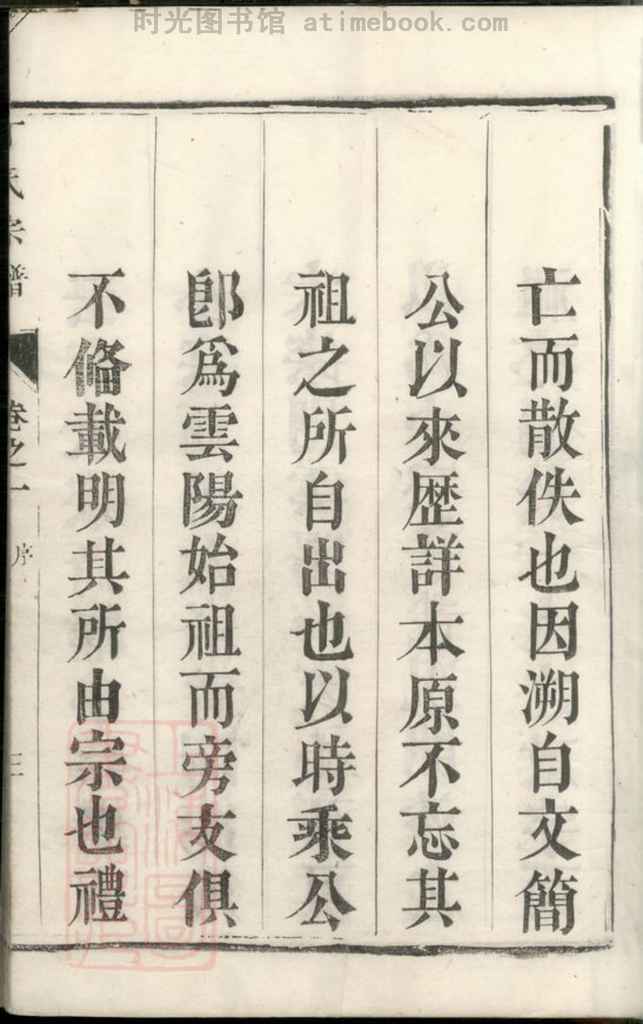 时光图书馆 atimebook.com
亡而散佚也因溯自文簡
公以來歴詳本原不忘其
祖之所自出也以時乘公
卽爲雲陽始祖而旁支俱
不俻載明其所由宗也禮
氏宗譜
卷之一
序
三